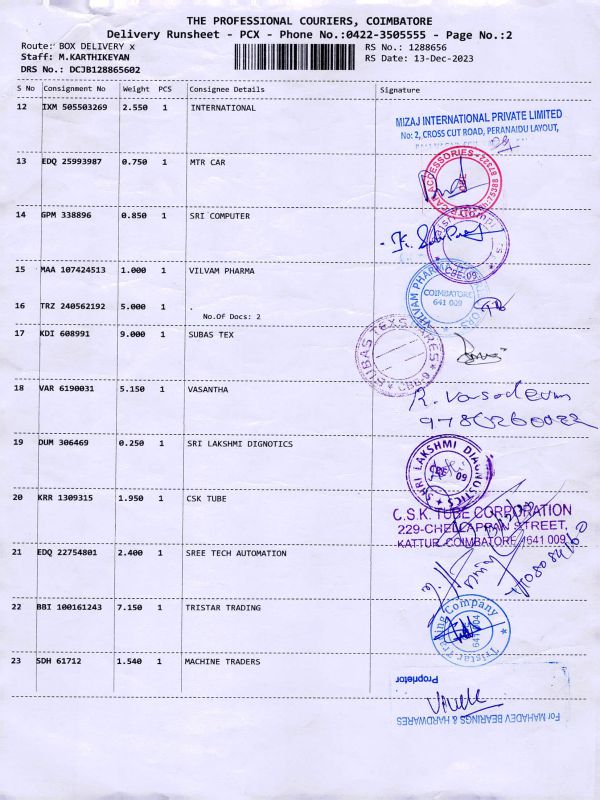 THE PROFESSIONAL COURIERS, COIMBATORE
Delivery Runsheet - PCX - Phone No.:0422-3505555 - Page No.:2
Route: BOX DELIVERY x RS No.: 1288656
Staff: M.KARTHIKEYAN RS Date: 13-Dec-2023
DRS No.: DCJB128865602
S No Consignment No Weight PCS Consignee Details Signature
12 IXM 505503269 2.550 1 INTERNATIONAL
MIZAJ INTERNATIONAL PRIVATE LIMITED
No: 2, CROSS CUT ROAD, PERANAIDU LAYOUT,
13 EDQ 25993987 0.750 1 MTR CAR
CAR ACCESSORIES
14 GPM 338896 0.850 1 SRI COMPUTER
CBE-09
15 MAA 107424513 1.000 1 VILVAM PHARMA
VILVAM PHARMA
COIMBATORE
641 009
16 TRZ 240562192 5.000 1 .
No.Of Docs: 2
17 KDI 608991 9.000 1 SUBAS TEX
SUBAS TEX
18 VAR 6190031 5.150 1 VASANTHA
R. Vasudevan
19 DUM 306469 0.250 1 SRI LAKSHMI DIGNOTICS
SHRI LAKSHMI DIAGNOSTICS
CBE
09
20 KRR 1309315 1.950 1 CSK TUBE
C.S.K. TUBE CORPORATION
229-CHELLAPPAN STREET,
KATTUR, COIMBATORE - 641 009
21 EDQ 22754801 2.400 1 SREE TECH AUTOMATION
22 BBI 100161243 7.150 1 TRISTAR TRADING
Tristar Trading Company
23 SDH 61712 1.540 1 MACHINE TRADERS
For MAHADEV BEARINGS & HARDWARES
Proprietor